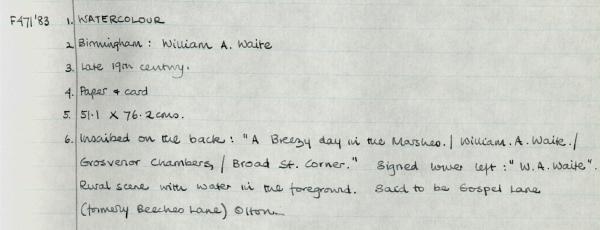 F471'83 1. WATERCOLOUR
2. Birmingham : William A. Waite
3. Late 19th century.
4. Paper & card
5. 51.1 X 76.2 cms.
6. Inscribed on the back : "A Breezy day in the Marshes. / William. A. Waite. /
Grosvenor Chambers, / Broad St. Corner." Signed lower left : "W.A. Waite".
Rural scene with water in the foreground. Said to be Gospel Lane
(formerly Beeches Lane) Olton.